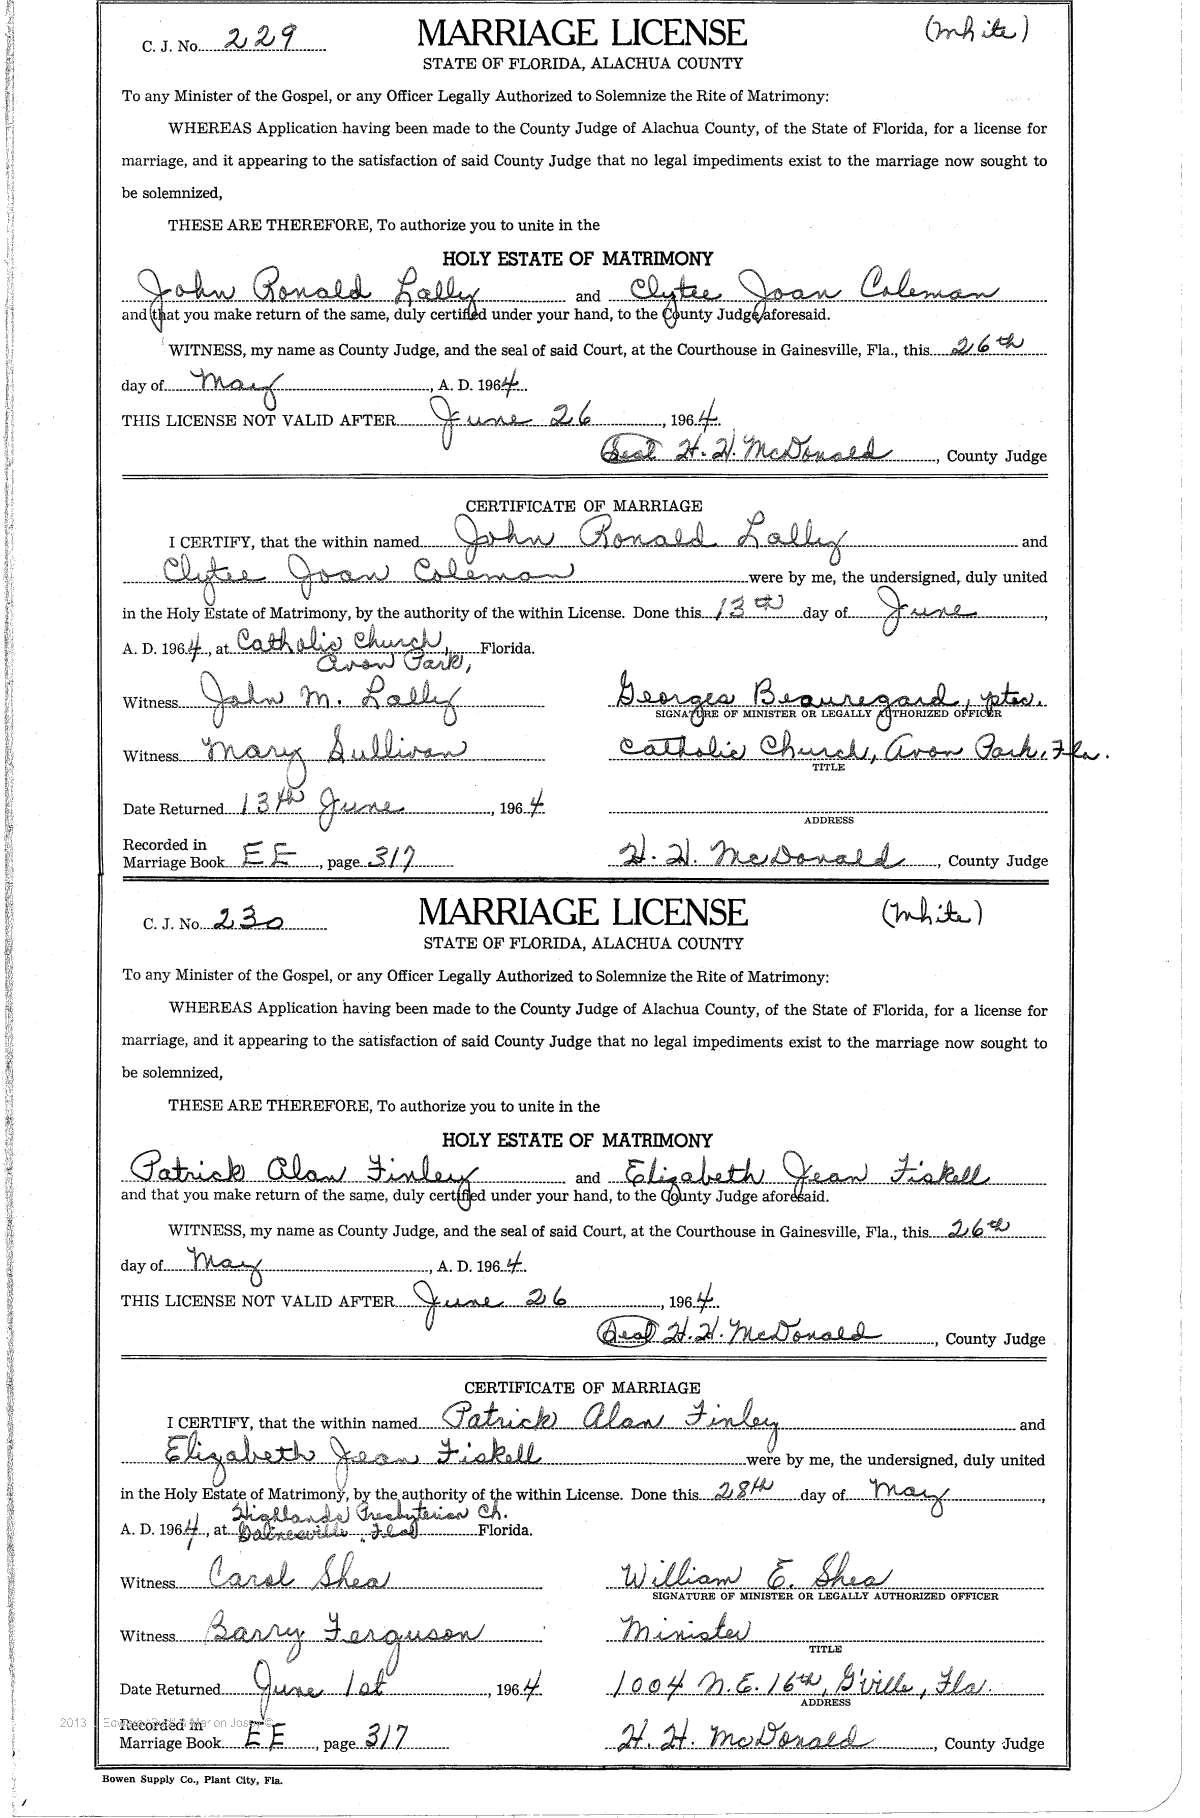 C. J. No. 229 MARRIAGE LICENSE (White)
STATE OF FLORIDA, ALACHUA COUNTY
To any Minister of the Gospel, or any Officer Legally Authorized to Solemnize the Rite of Matrimony:
WHEREAS Application having been made to the County Judge of Alachua County, of the State of Florida, for a license for
marriage, and it appearing to the satisfaction of said County Judge that no legal impediments exist to the marriage now sought to
be solemnized,
THESE ARE THEREFORE, To authorize you to unite in the
HOLY ESTATE OF MATRIMONY
John Ronald Lally and Clytee Joan Coleman
and that you make return of the same, duly certified under your hand, to the County Judge aforesaid.
WITNESS, my name as County Judge, and the seal of said Court, at the Courthouse in Gainesville, Fla., this 26th
day of May, A. D. 1964.
THIS LICENSE NOT VALID AFTER June 26, 1964.
Seal H. H. McDonald, County Judge
CERTIFICATE OF MARRIAGE
I CERTIFY, that the within named John Ronald Lally and
Clytee Joan Coleman were by me, the undersigned, duly united
in the Holy Estate of Matrimony, by the authority of the within License. Done this 13th day of June,
A. D. 1964, at Catholic Church, Florida.
Avon Park,
Witness John M. Lally Georges Beauregard, ptec.
SIGNATURE OF MINISTER OR LEGALLY AUTHORIZED OFFICER
Witness Mary Sullivan Catholic Church, Avon Park, Fla.
TITLE
Date Returned 13th June, 1964
ADDRESS
Recorded in
Marriage Book EE, page 317 H. H. McDonald, County Judge
C. J. No. 230 MARRIAGE LICENSE (White)
STATE OF FLORIDA, ALACHUA COUNTY
To any Minister of the Gospel, or any Officer Legally Authorized to Solemnize the Rite of Matrimony:
WHEREAS Application having been made to the County Judge of Alachua County, of the State of Florida, for a license for
marriage, and it appearing to the satisfaction of said County Judge that no legal impediments exist to the marriage now sought to
be solemnized,
THESE ARE THEREFORE, To authorize you to unite in the
HOLY ESTATE OF MATRIMONY
Patrick Alan Finley and Elizabeth Jean Fiskell
and that you make return of the same, duly certified under your hand, to the County Judge aforesaid.
WITNESS, my name as County Judge, and the seal of said Court, at the Courthouse in Gainesville, Fla., this 26th
day of May, A. D. 1964.
THIS LICENSE NOT VALID AFTER June 26, 1964.
Seal H. H. McDonald, County Judge
CERTIFICATE OF MARRIAGE
I CERTIFY, that the within named Patrick Alan Finley and
Elizabeth Jean Fiskell were by me, the undersigned, duly united
in the Holy Estate of Matrimony, by the authority of the within License. Done this 28th day of May,
Highlands Presbyterian Ch.
A. D. 1964, at Gainesville, Fla Florida.
Witness Carol Shea William E. Shea
SIGNATURE OF MINISTER OR LEGALLY AUTHORIZED OFFICER
Witness Barry Ferguson Minister
TITLE
Date Returned June 1st, 1964 1004 N.E. 16th, G'ville, Fla.
ADDRESS
2013
Recorded in
Marriage Book EE, page 317 H. H. McDonald, County Judge
Bowen Supply Co., Plant City, Fla.